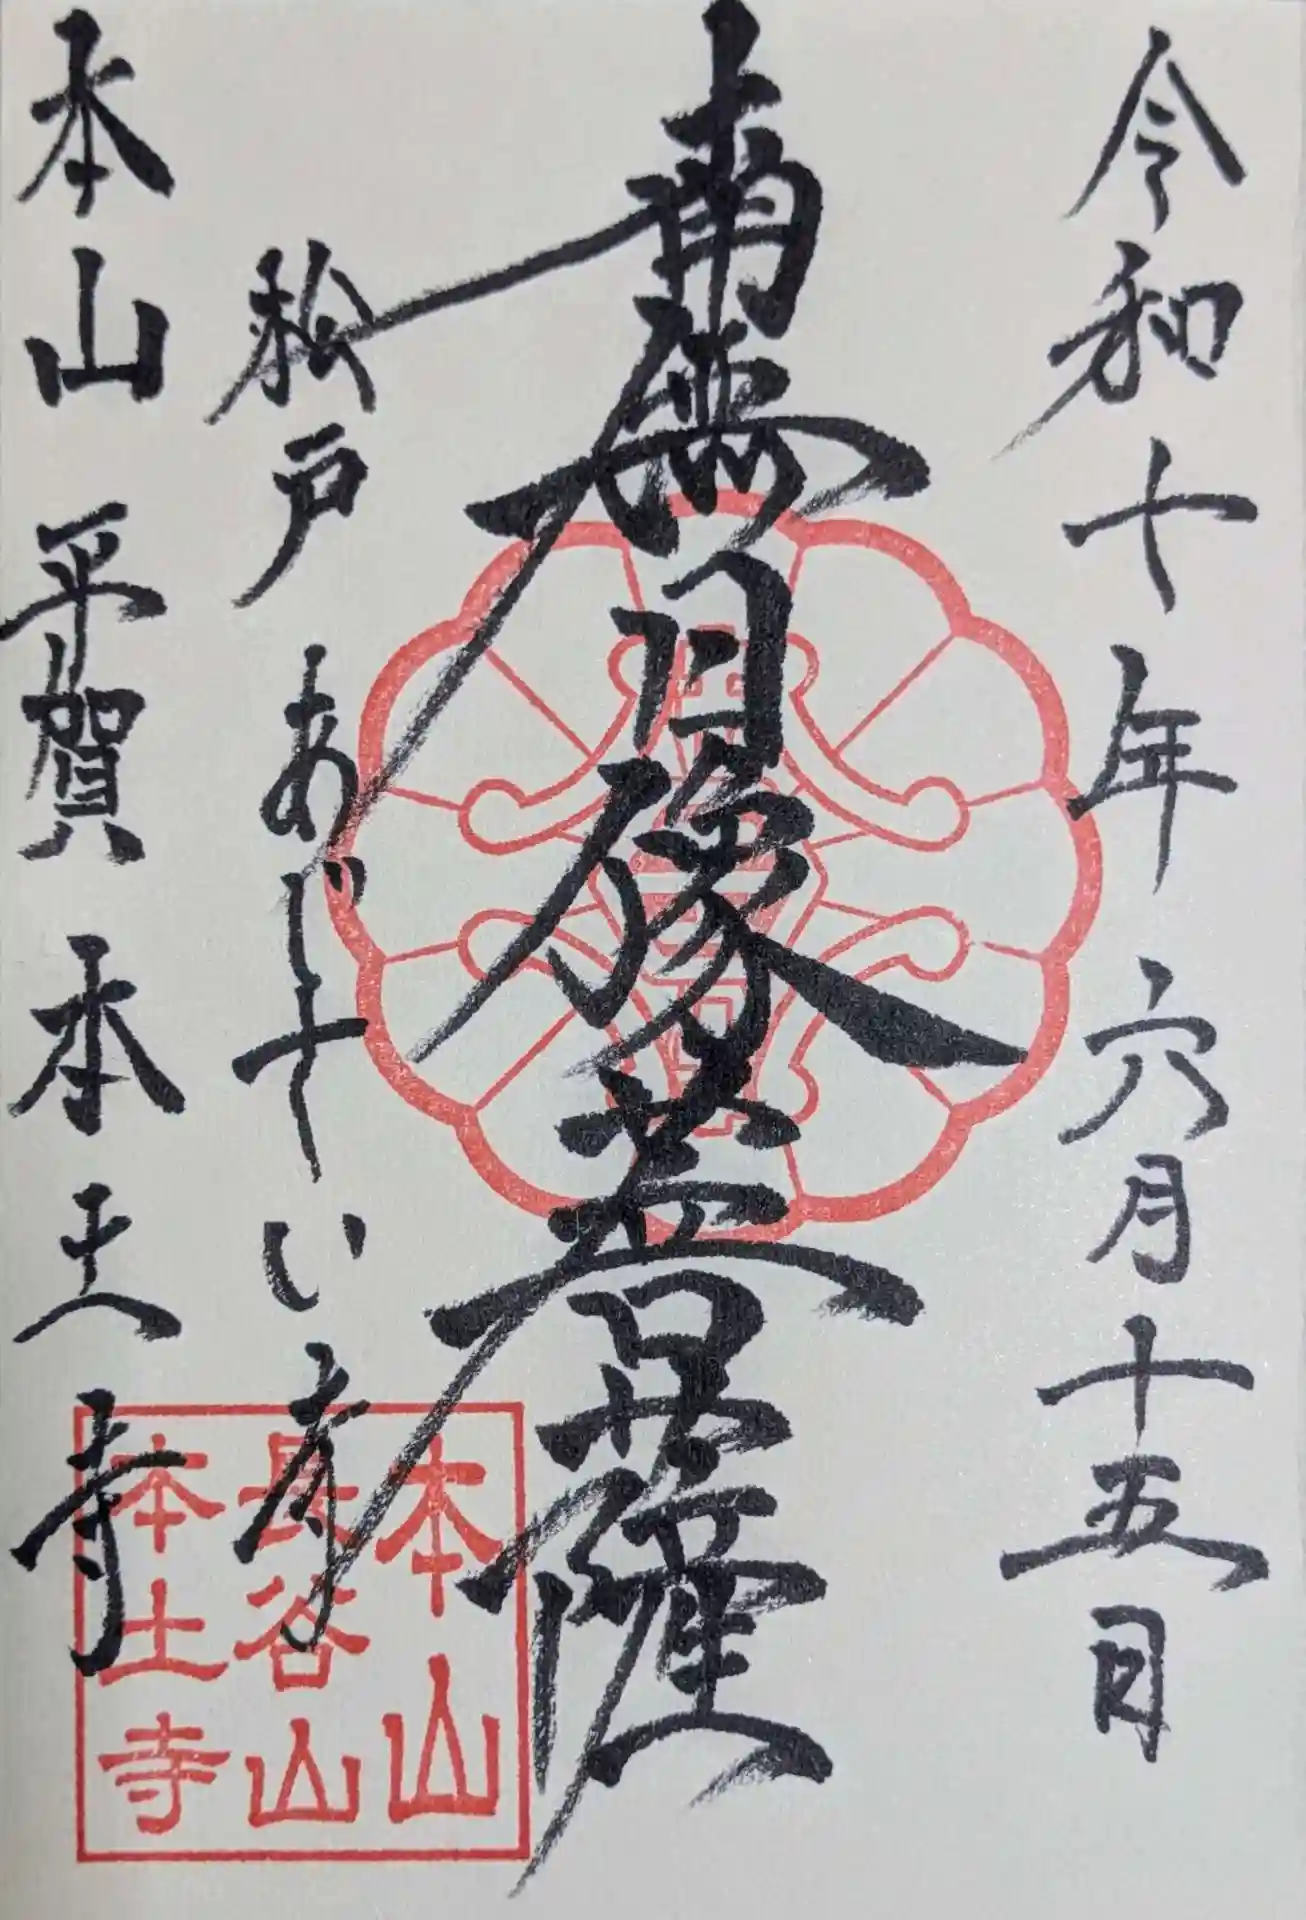 令和十年六月十五日
南無日像菩薩
松戸 あじさい寺
本山 平賀 本土寺
本山
長谷山
本土寺